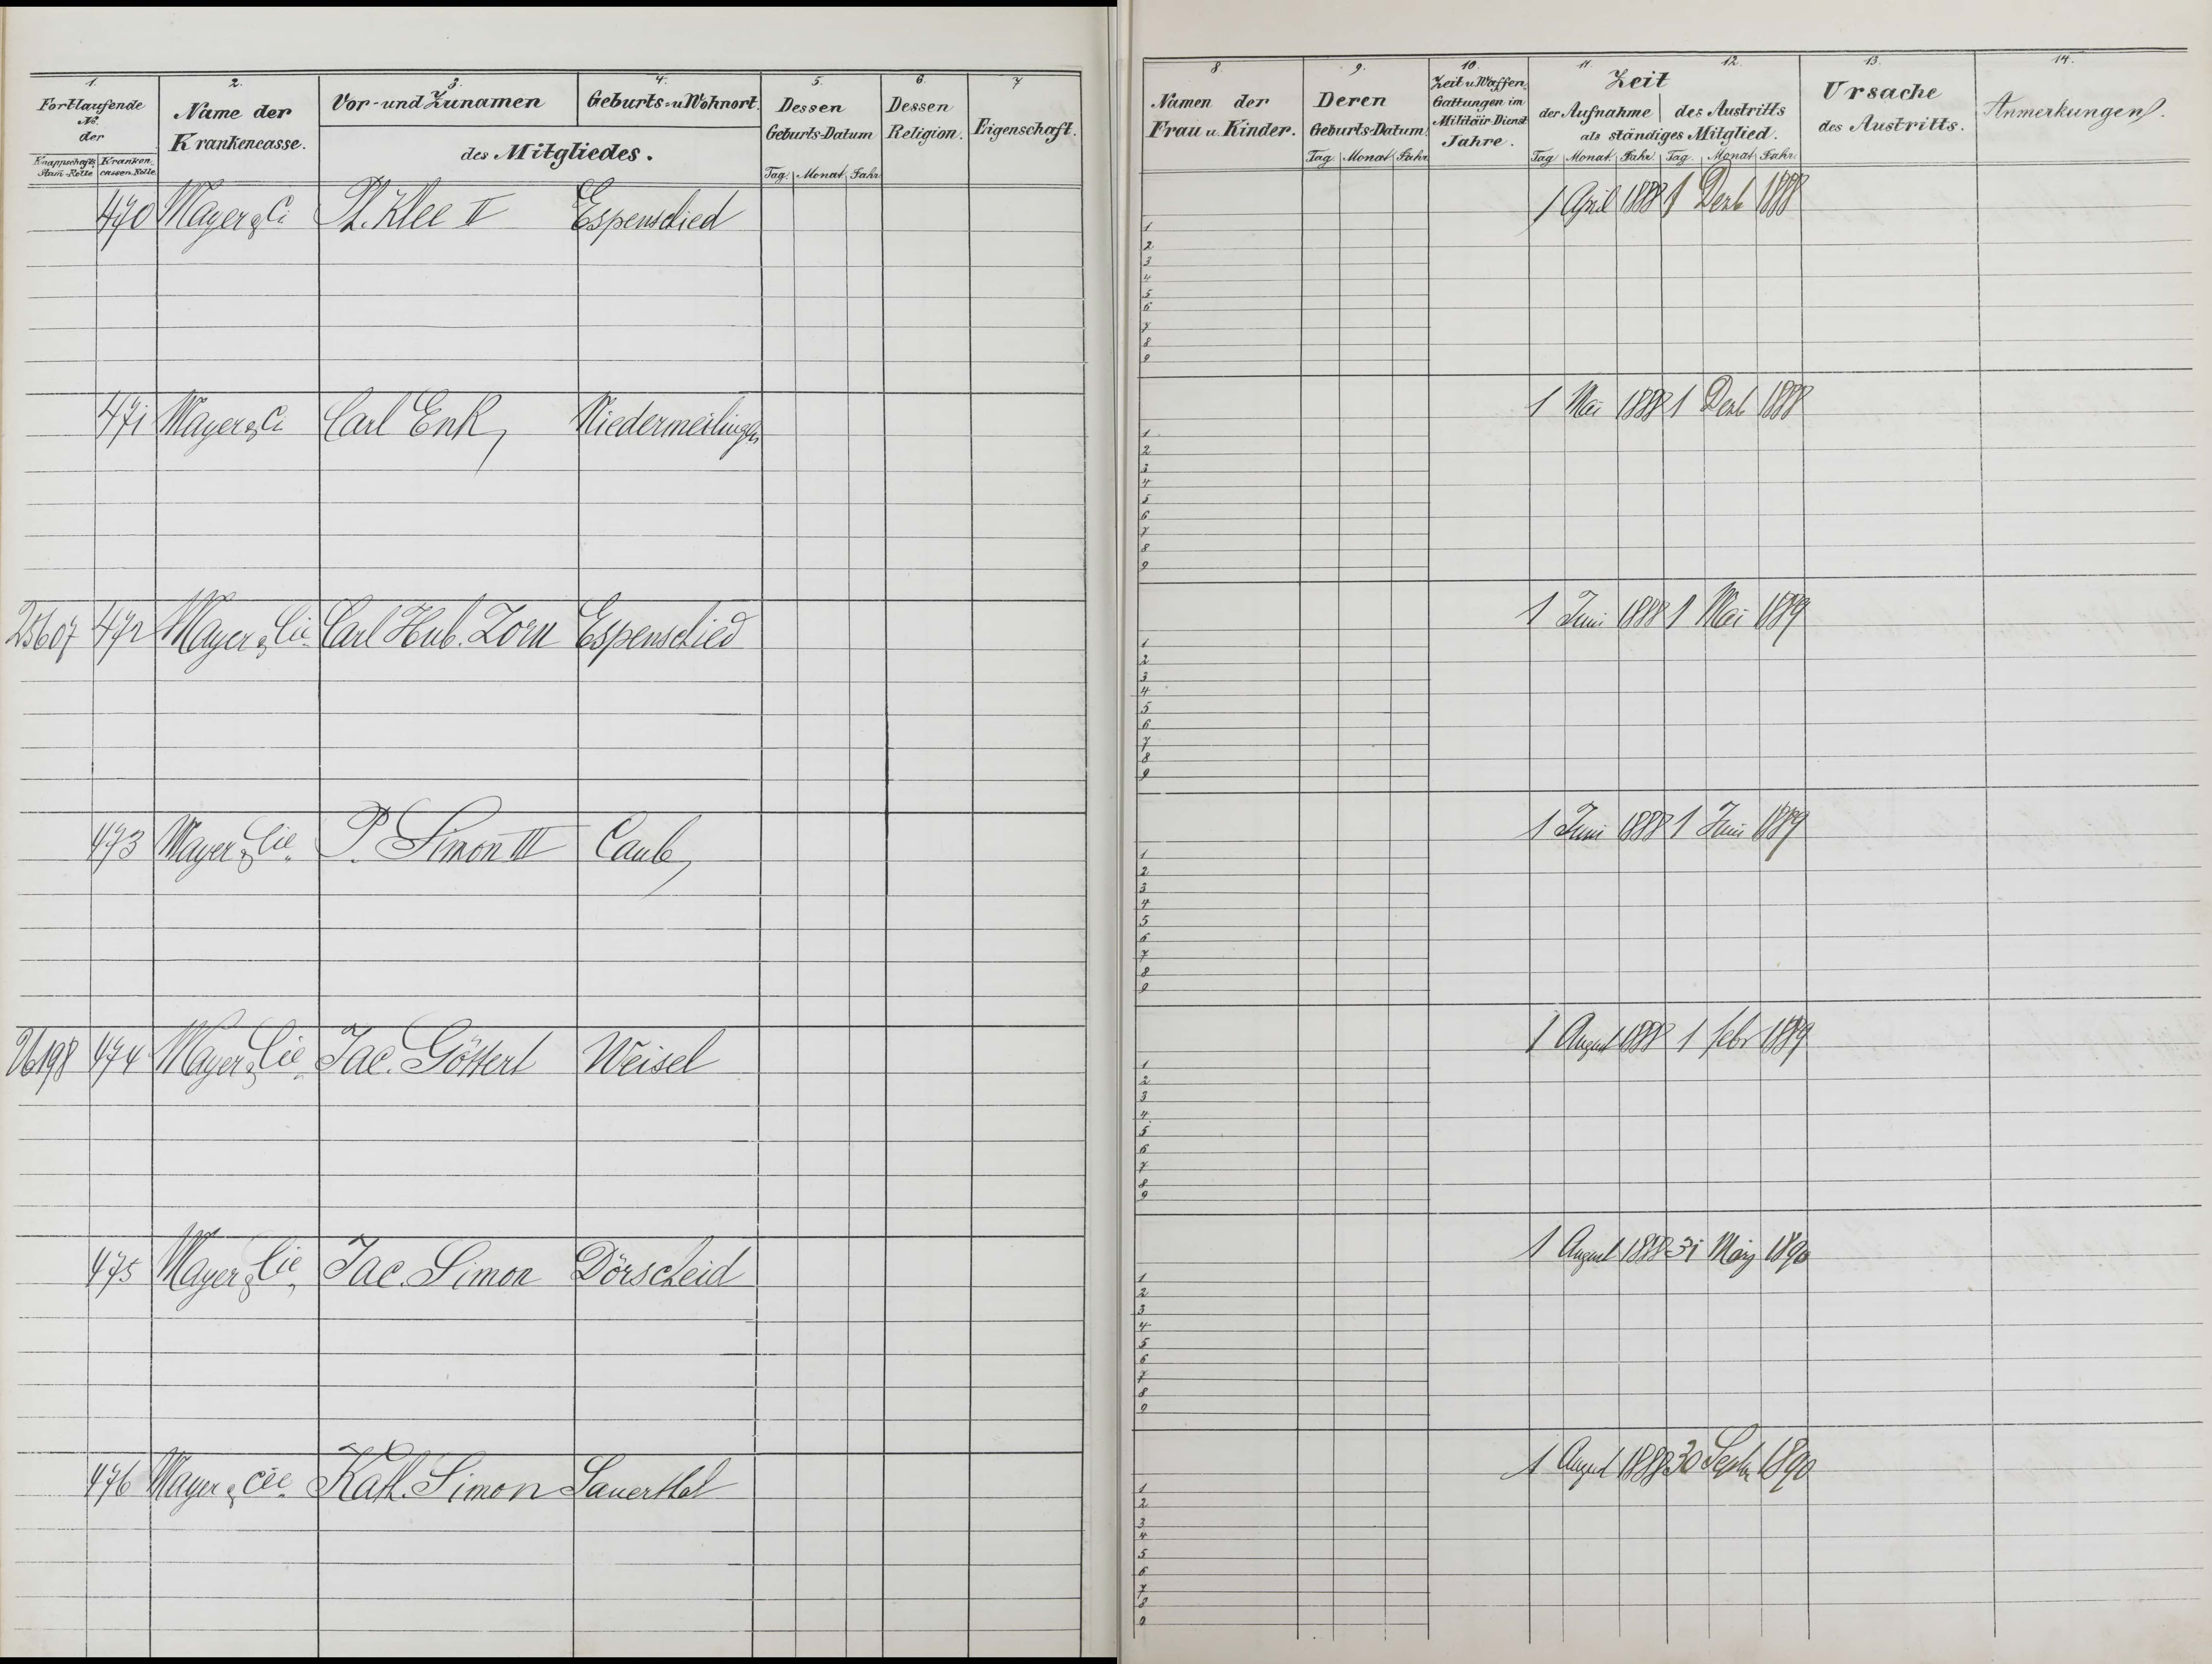 1. 2. 3. 4. 5. 6. 7.
Fortlaufende No. der
Knappschafts Stam-Rolle Kranken cassen-Rolle
Name der Krankencasse.
Vor- und Zunamen Geburts- u Wohnort.
des Mitgliedes.
Dessen Geburts-Datum
Tag. Monat Jahr
Dessen Religion.
Eigenschaft.
470 Mayer & Ci Ph. Klee II Espenschied
471 Mayer & Ci Carl Enk, Niedermeilingen
25607 472 Mayer & Cie. Carl Hub. Zorn Espenschied
473 Mayer & Cie. P. Simon III Caub,
26198 474 Mayer & Cie. Jac. Göttert Weisel
475 Mayer & Cie. Jac. Simon Dörscheid
476 Mayer & Cie. Kath. Simon Sauerthal
8. 9. 10. 11. 12. 13. 14.
Namen der Frau u. Kinder.
Deren Geburts-Datum.
Tag. Monat Jahr
Zeit u Waffen, Gattungen im Militäir-Dienst Jahre.
Zeit
der Aufnahme des Austritts
als ständiges Mitglied.
Tag Monat Jahr. Tag. Monat Jahr.
Ursache des Austritts.
Anmerkungen.
1 April 1888 1 Dezb 1888
1
2
3
4
5
6
7
8
9
1 Mai 1888 1 Dezb 1888
1
2
3
4
5
6
7
8
9
1 Juni 1888 1 Mai 1889
1
2
3
4
5
6
7
8
9
1 Juni 1888 1 Juni 1889
1
2
3
4
5
6
7
8
9
1 August 1888 1 febr 1889
1
2
3
4
5
6
7
8
9
1 August 1888 31 März 1890
1
2
3
4
5
6
7
8
9
1 August 1888 30 Septb 1890
1
2
3
4
5
6
7
8
9